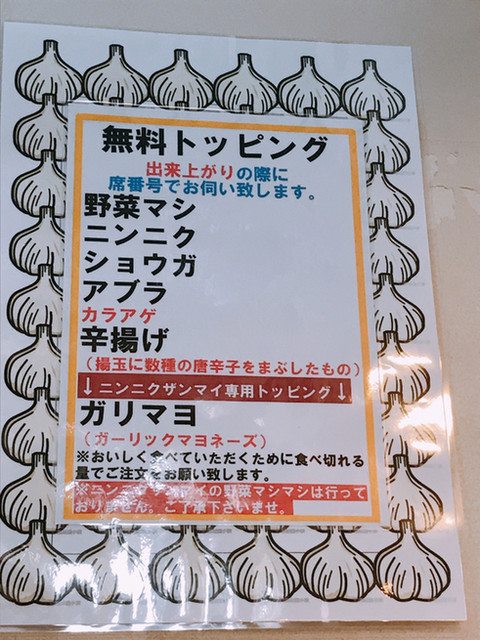 無料トッピング
出来上がりの際に
席番号でお伺い致します。
野菜マシ
ニンニク
ショウガ
アブラ
カラアゲ
辛揚げ
(揚玉に数種の唐辛子をまぶしたもの)
↓ニンニクザンマイ専用トッピング↓
ガリマヨ
(ガーリックマヨネーズ)
※おいしく食べていただくために食べ切れる
量でご注文をお願い致します。
※ニンニクザンマイの野菜マシマシは行って
おりません。ご了承下さいませ。